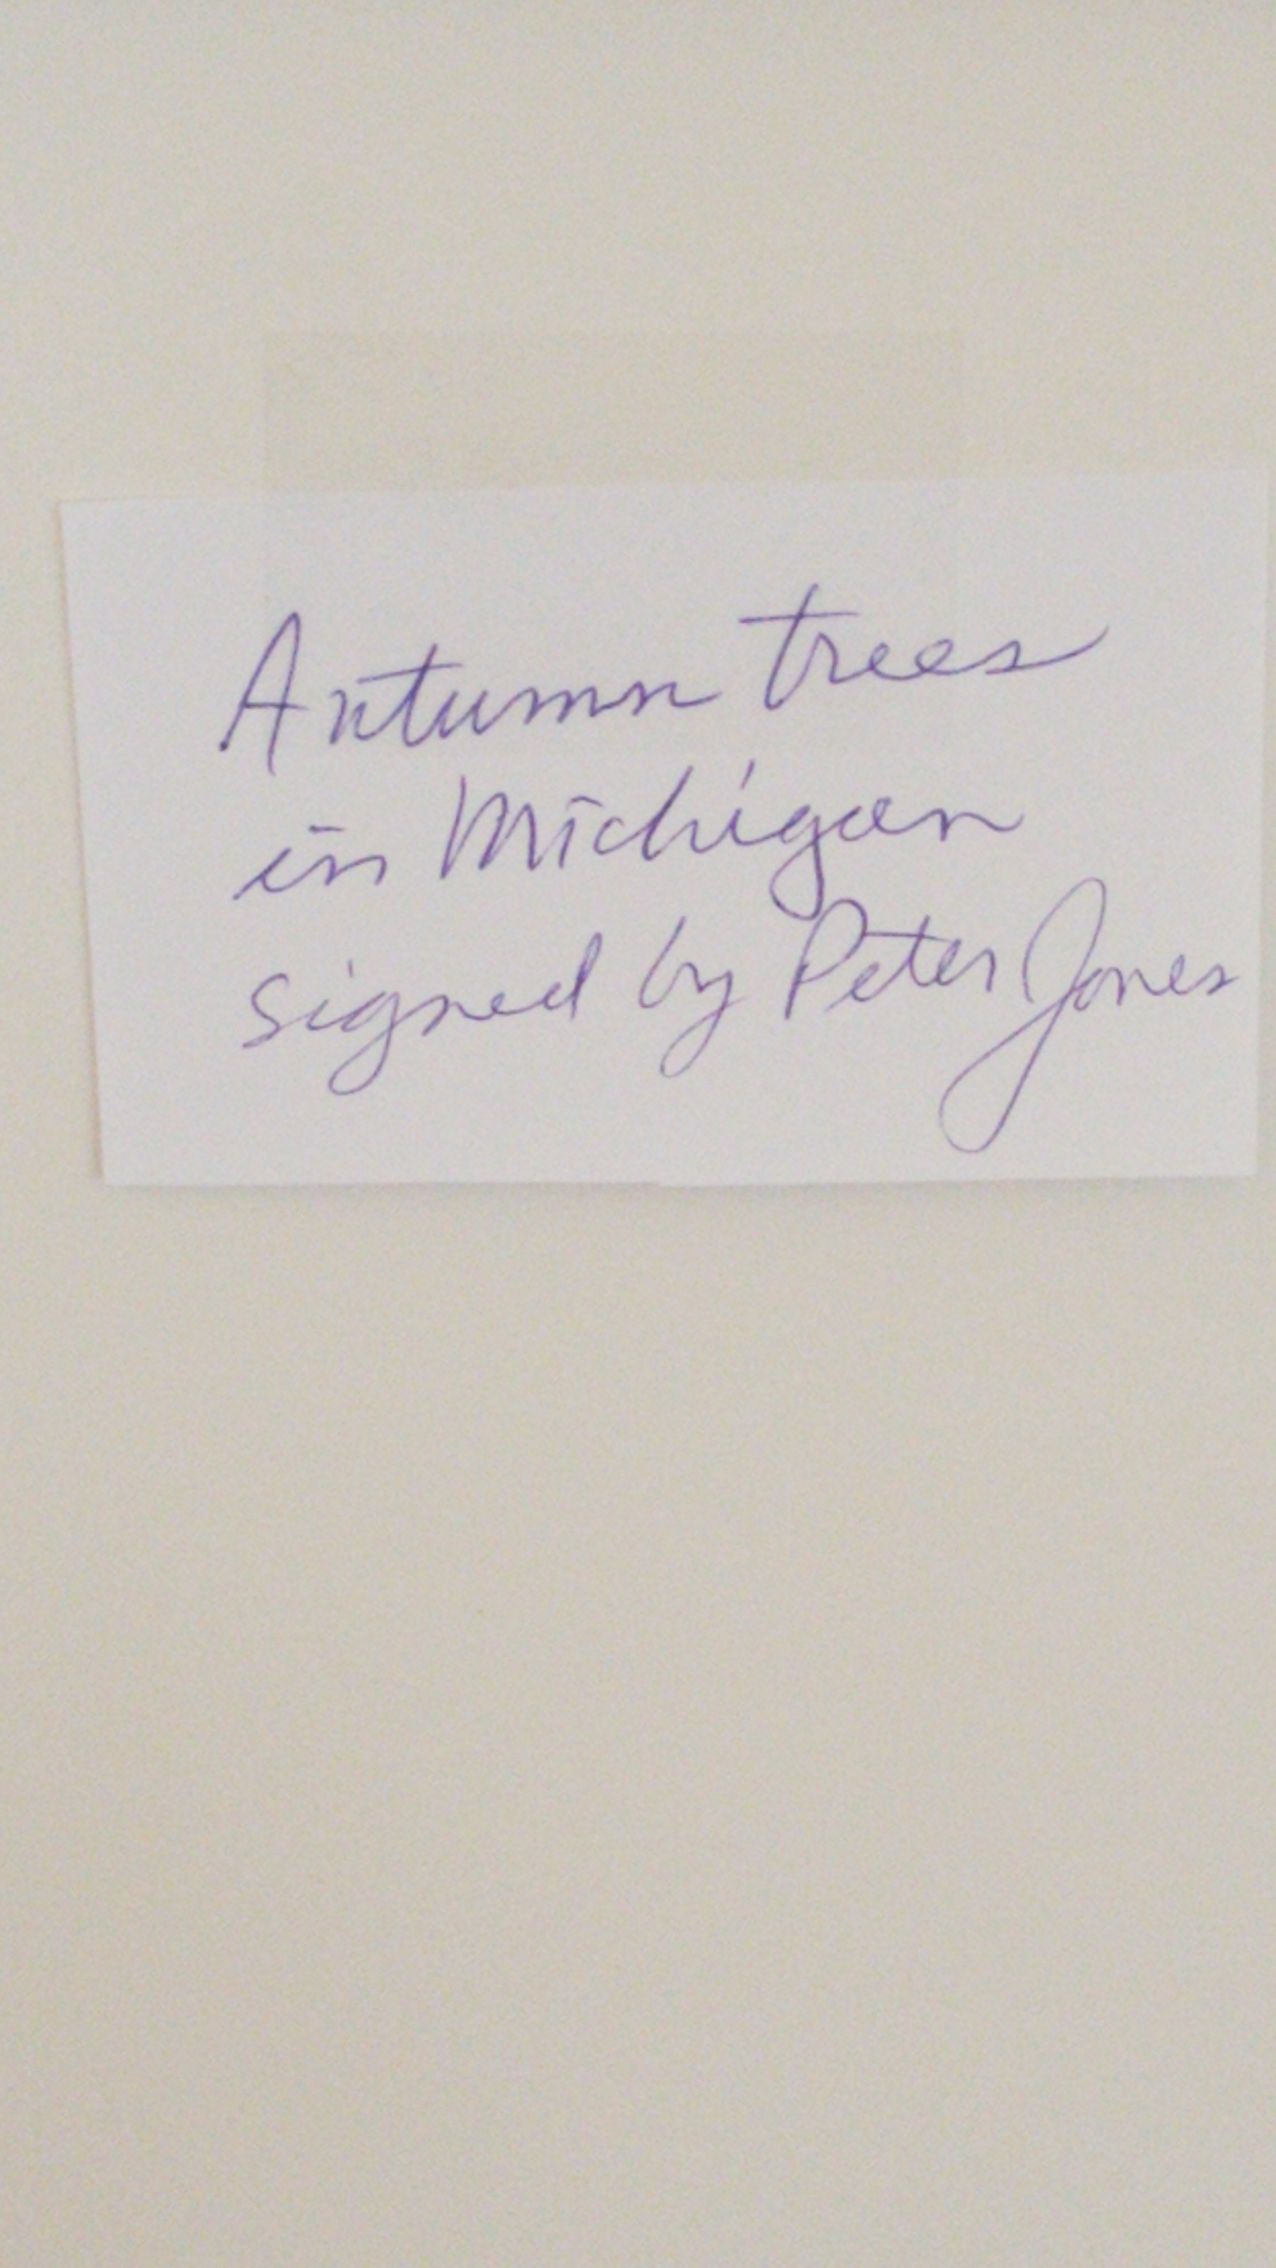 Autumn trees
in Michigan
signed by Peter Jones